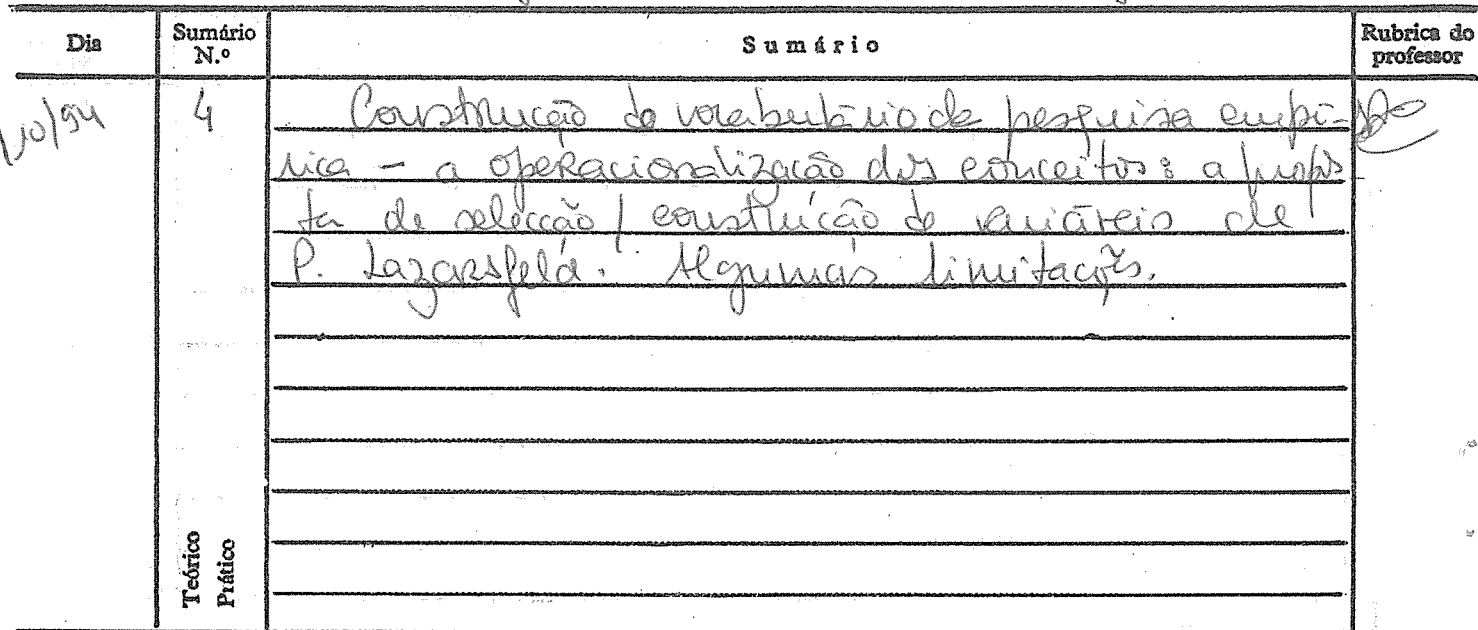 Dia Sumário N.º Sumário Rubrica do professor
10/94 4 Construção do vocabulário de pesquisa empí-
rica – a operacionalização dos conceitos: a propos
ta de selecção / construção de variáveis de
P. Lazarsfeld. Algumas limitações.
Teórico
Prático